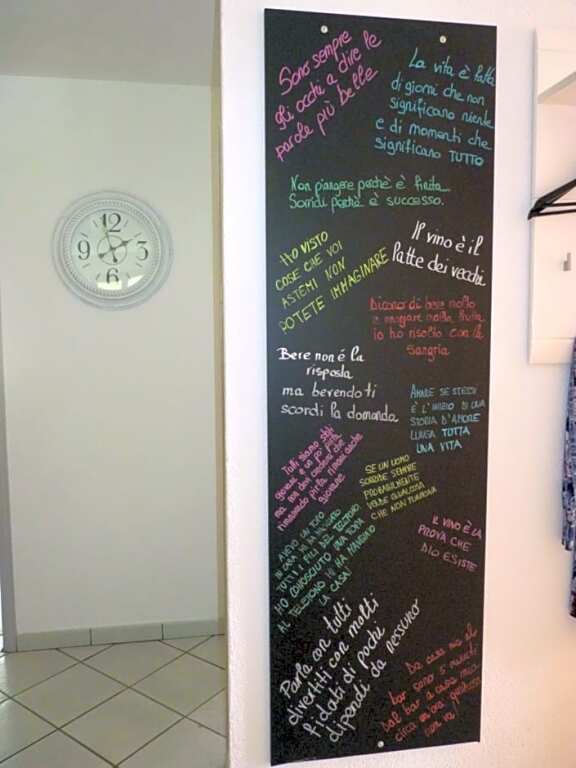 12
3
6
9
Sono sempre
gli occhi a dire le
parole più belle
La vita è fatta
di giorni che non
significano niente
e di momenti che
significano TUTTO
Non piangere perchè è finita...
Sorridi perchè è successo.
HO VISTO
COSE CHE VOI
ASTEMI NON
POTETE IMMAGINARE
Il vino è il
latte dei vecchi
Dicono di bere molto
e mangiare molta frutta
io ho risolto con la
Sangria
Bere non é la
risposta
ma bevendo ti
scordi la domanda
AMARE SE STESSI
È L'INIZIO DI UNA
STORIA D'AMORE
LUNGA TUTTA
UNA VITA
Tutti siamo stati
giovani e un po' pirla
ma non devi credere che
rimanendo pirla rimani anche
giovane
SE UN UOMO
SORRIDE SEMPRE
PROBABILMENTE
VENDE QUALCOSA
CHE NON FUNZIONA
AVEVO UN TOPO
IN CASA MI HA MANGIATO
TUTTI I FILI DEL TELEFONO.
HO CONOSCIUTO UNA TOPA
AL TELEFONO MI HA MANGIATO
LA CASA!
IL VINO È LA
PROVA CHE
DIO ESISTE
Parla con tutti
divertiti con molti
fidati di pochi
dipendi da nessuno
Da casa mia al
bar sono 5 minuti
dal bar a casa mia
circa un'ora